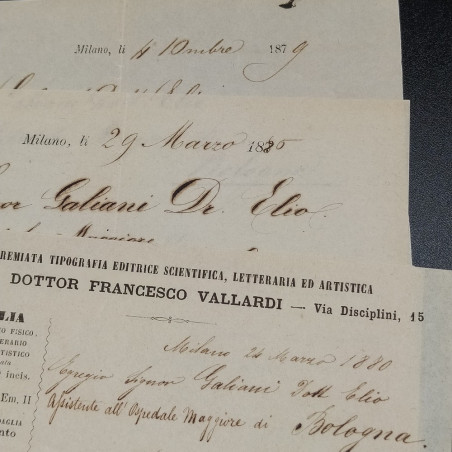 Milano, li 4 10mbre 1879
Milano, li 29 Marzo 18
Galiani Dr. Elio.
Maggiore
REMIATA TIPOGRAFIA EDITRICE SCIENTIFICA, LETTERARIA ED ARTISTICA
DOTTOR FRANCESCO VALLARDI — Via Disciplini, 15
LIA
O FISICO.
ERARIO
TISTICO
e incis.
Em. II
DAGLIA
nto
Milano 24 Marzo 1880
Egregio Signor Galiani Dott Elio
Assistente all'Ospedale Maggiore di Bologna.